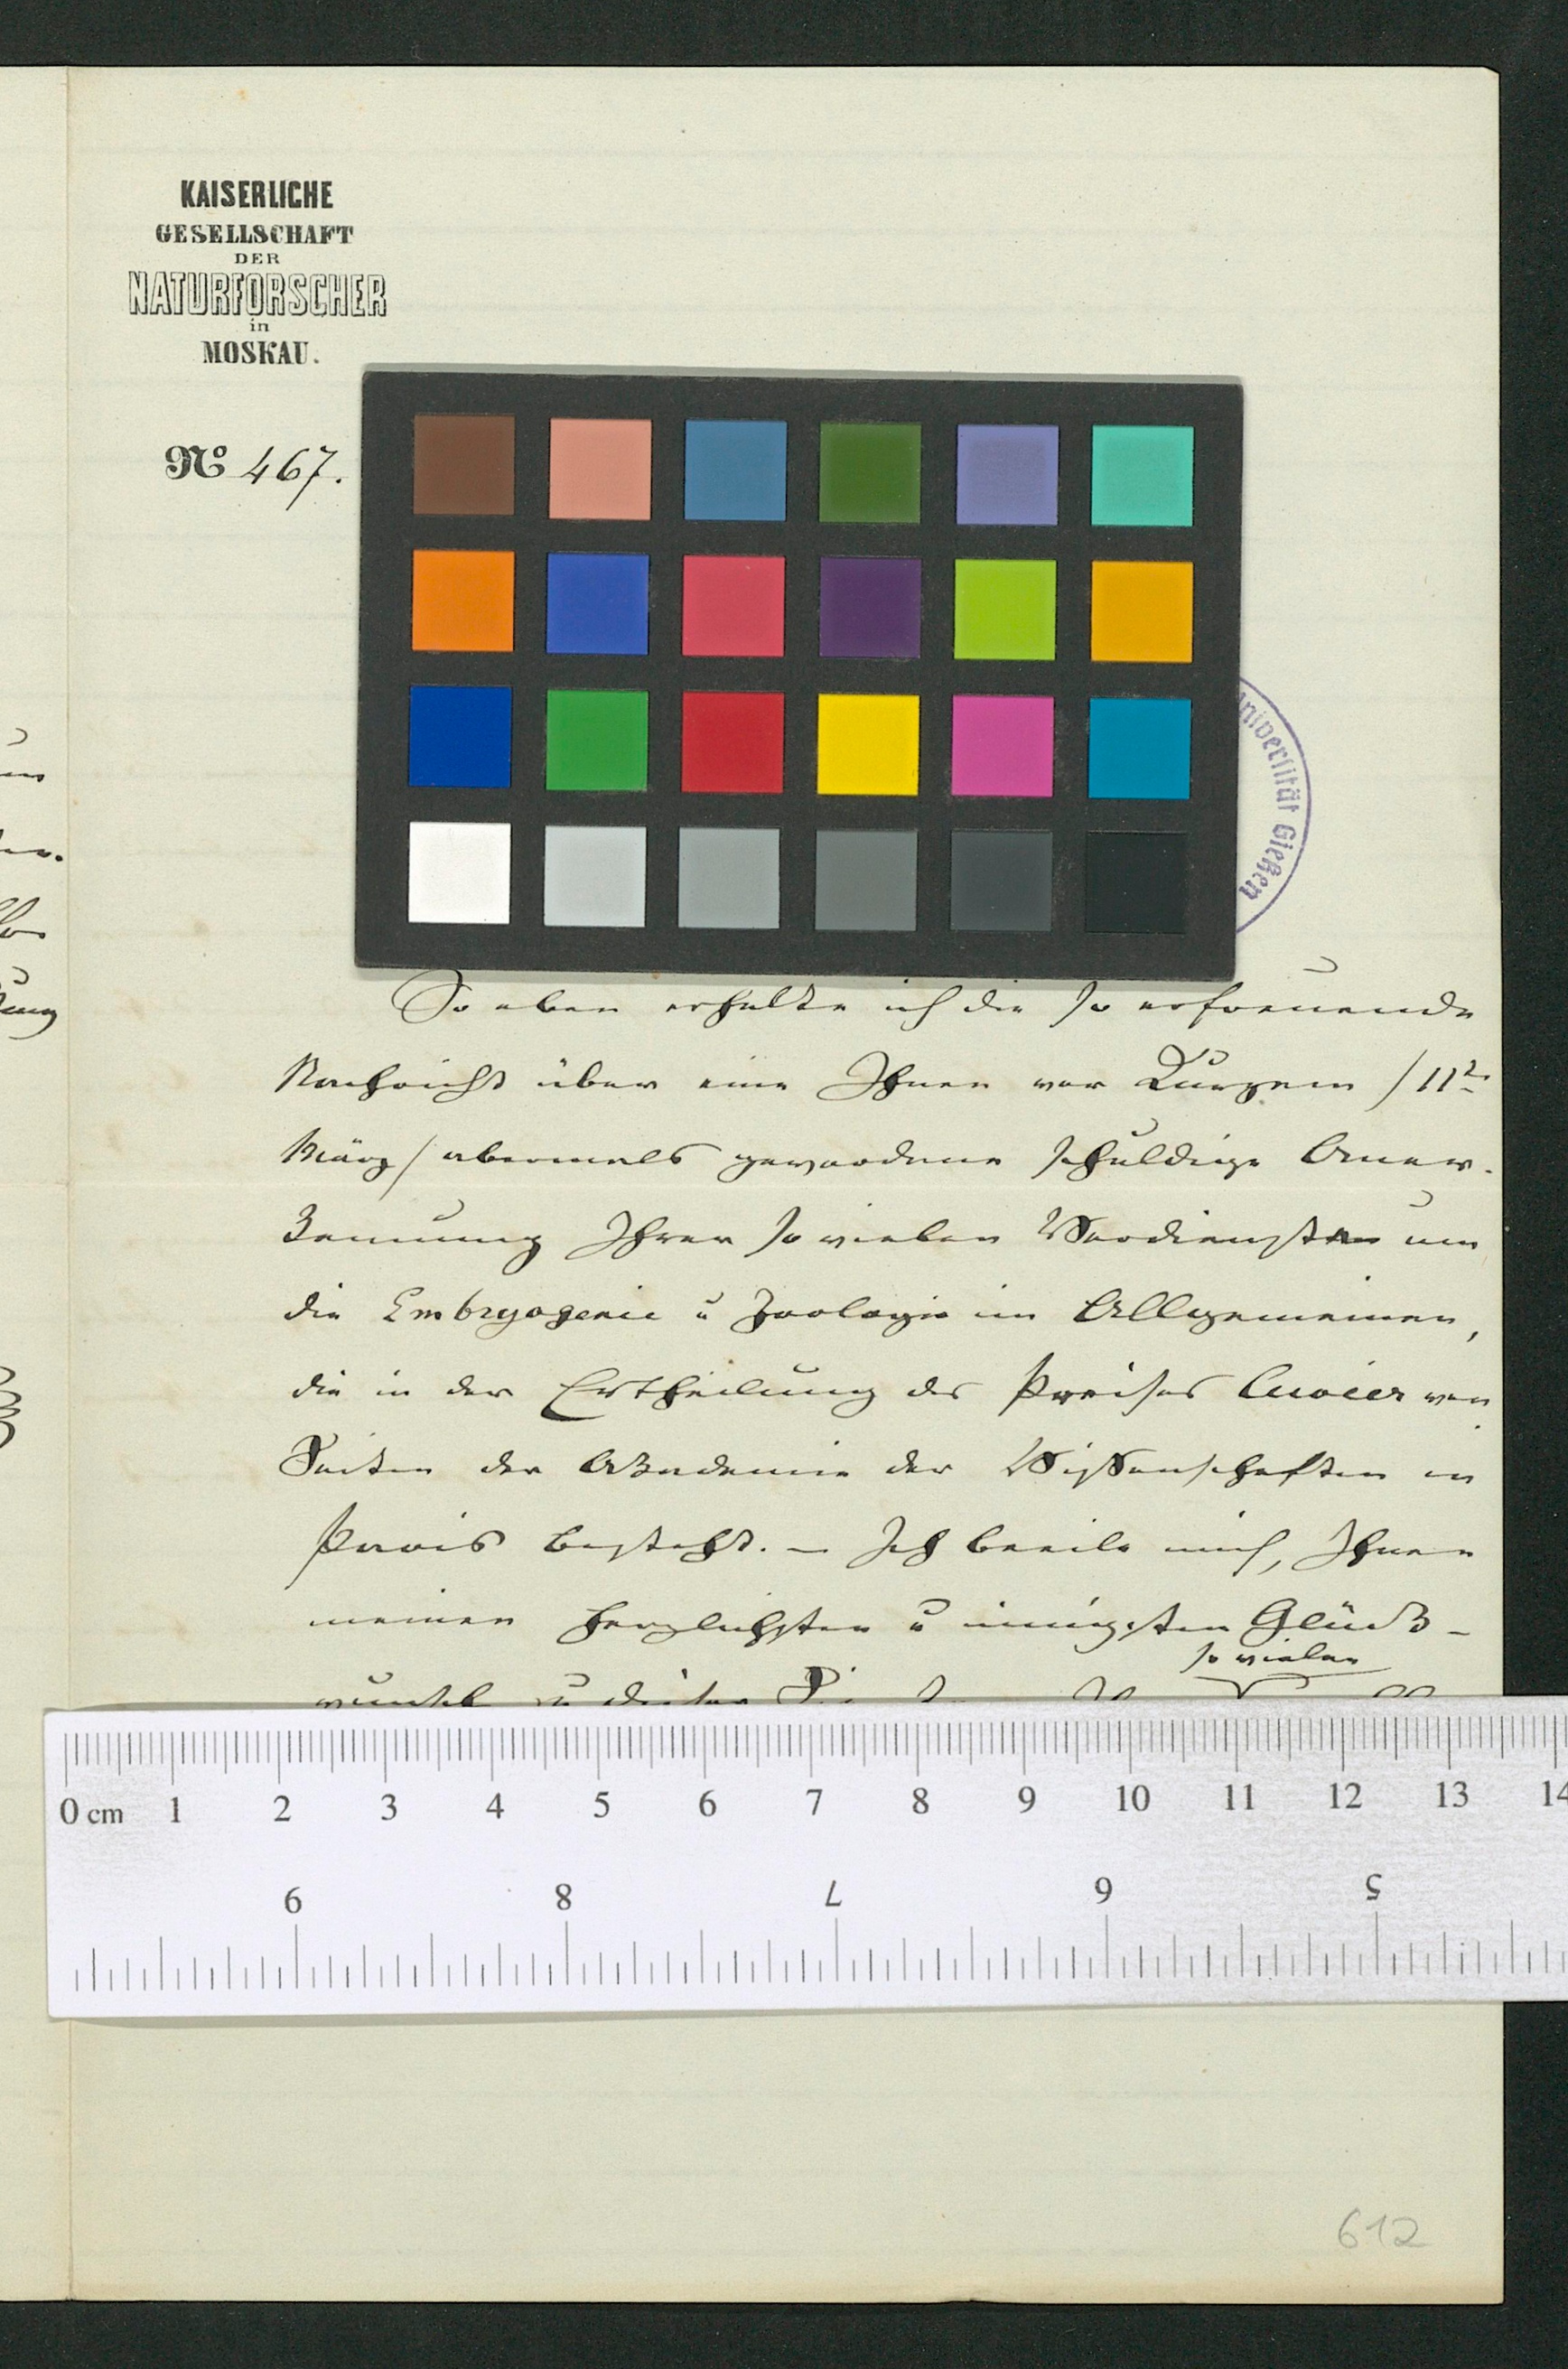 KAISERLICHE
GESELLSCHAFT
DER
NATURFORSCHER
in
MOSKAU.
No 467.
Universität Gießen
So eben erhalte ich die so erfreuende
Nachricht über eine Ihnen vor Kurzem /11t
März/ abermals gewordene schuldige Aner-
kennung Ihrer so vielen Verdienste um
die Embryogenie u Zoologie im Allgemeinen,
die in der Ertheilung des Preises Cuvier von
Seiten der Akademie der Wissenschaften in
Paris besteht. – Ich beeile mich, Ihnen
meinen herzlichsten u innigsten Glück-
so vielen
wunsch zu dieser
0 cm 1 2 3 4 5 6 7 8 9 10 11 12 13 14
9 8 7 6 5
612